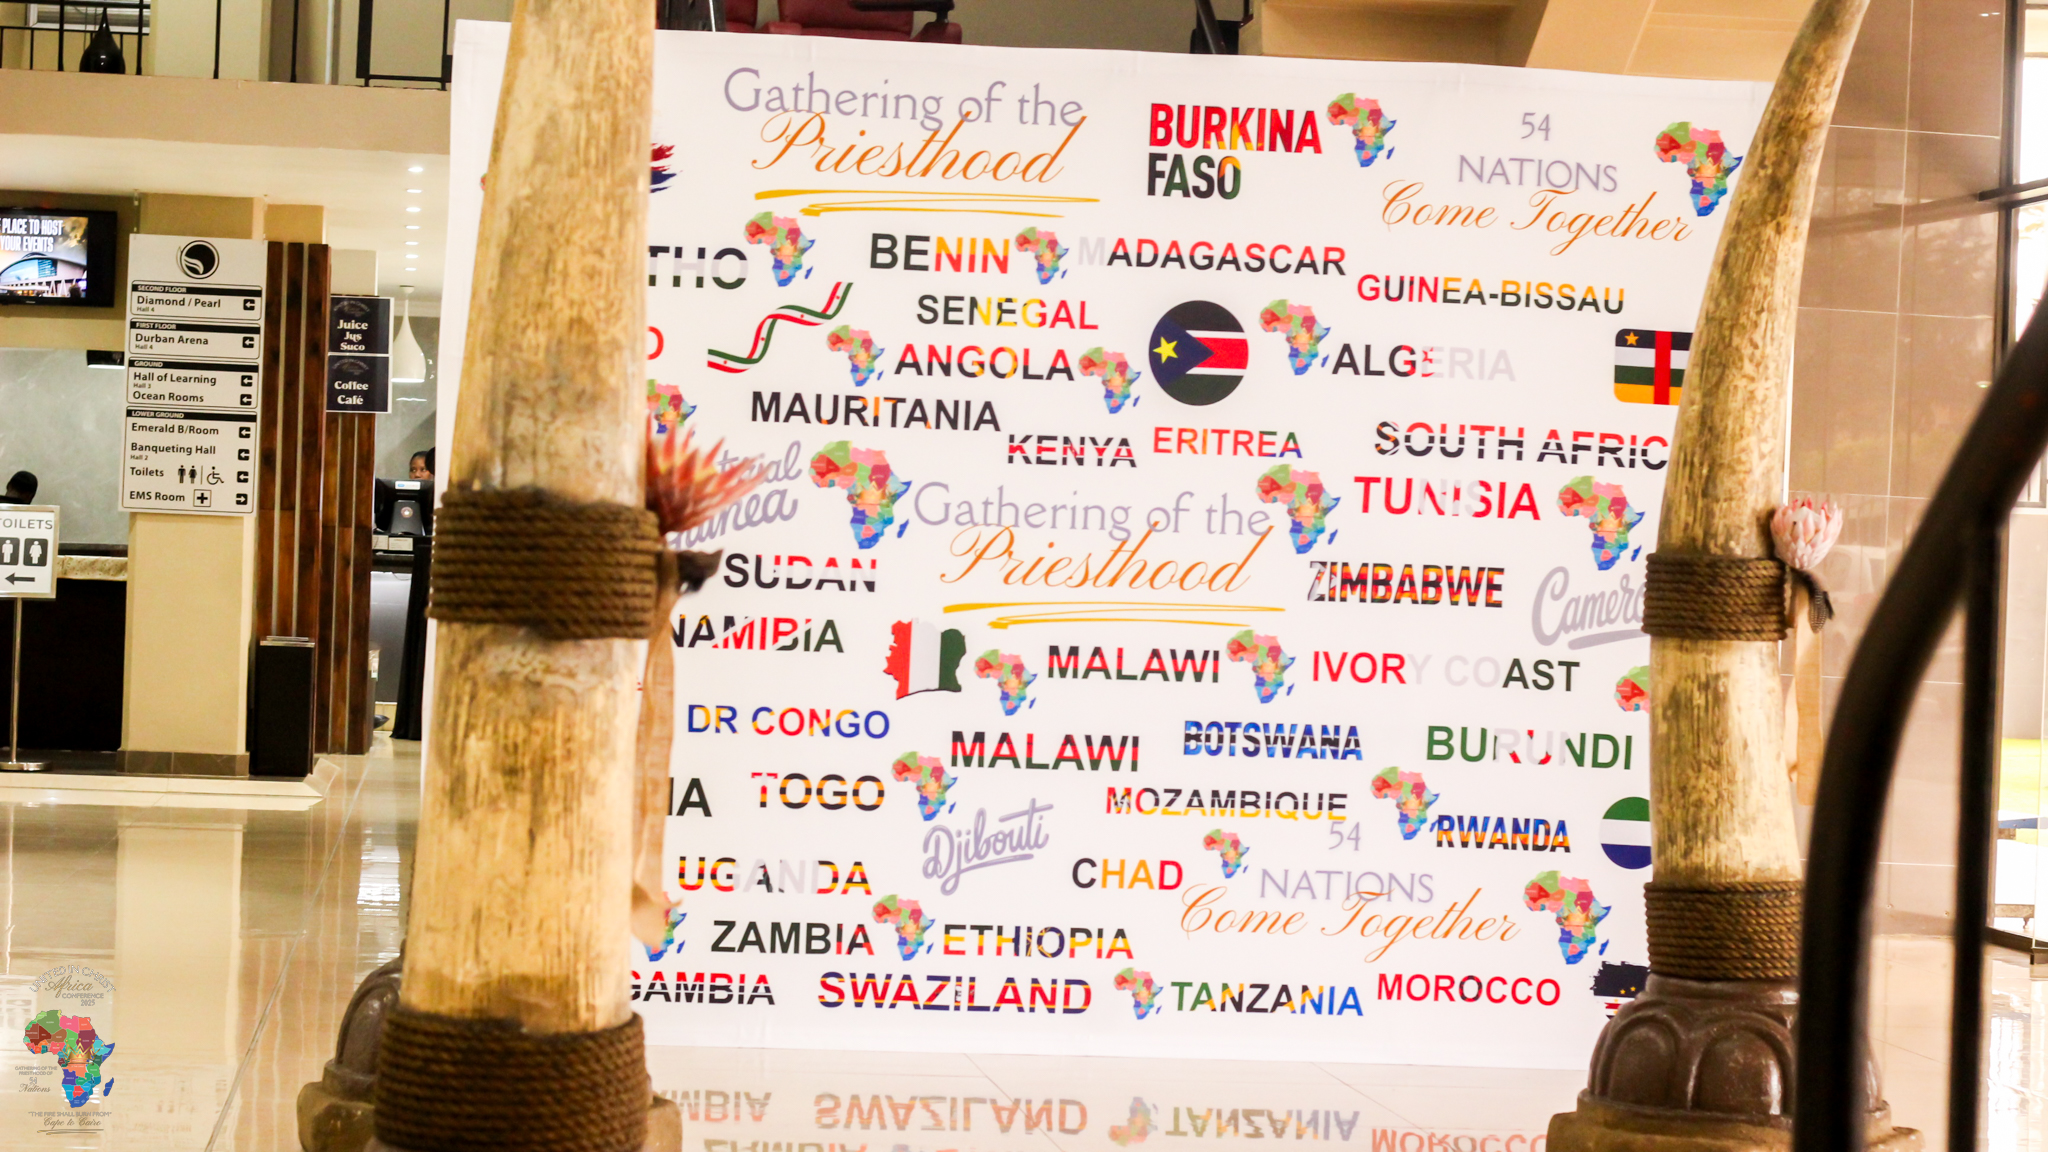 Gathering of the
Priesthood
BURKINA
FASO
54
NATIONS
Come Together
THO
BENIN
MADAGASCAR
GUINEA-BISSAU
SENEGAL
ANGOLA
ALGERIA
MAURITANIA
KENYA
ERITREA
SOUTH AFRIC
TUNISIA
Gathering of the
Priesthood
SUDAN
ZIMBABWE
Camero
NAMIBIA
MALAWI
IVORY COAST
DR CONGO
MALAWI
BOTSWANA
BURUNDI
IA
TOGO
Djibouti
MOZAMBIQUE
RWANDA
UGANDA
CHAD
54
NATIONS
Come Together
ZAMBIA
ETHIOPIA
GAMBIA
SWAZILAND
TANZANIA
MOROCCO
PLACE TO HOST
YOUR EVENTS
SECOND FLOOR
Diamond / Pearl
Hall 4
FIRST FLOOR
Durban Arena
Hall 4
GROUND
Hall of Learning
Hall 3
Ocean Rooms
LOWER GROUND
Emerald B/Room
Banqueting Hall
Hall 2
Toilets
EMS Room
Juice
Jus
Suco
Coffee
Café
TOILETS
UNITED IN CHRIST
Africa
CONFERENCE
2025
GATHERING OF THE
PRIESTHOOD OF
54
Nations
"THE FIRE SHALL BURN FROM"
Cape to Cairo